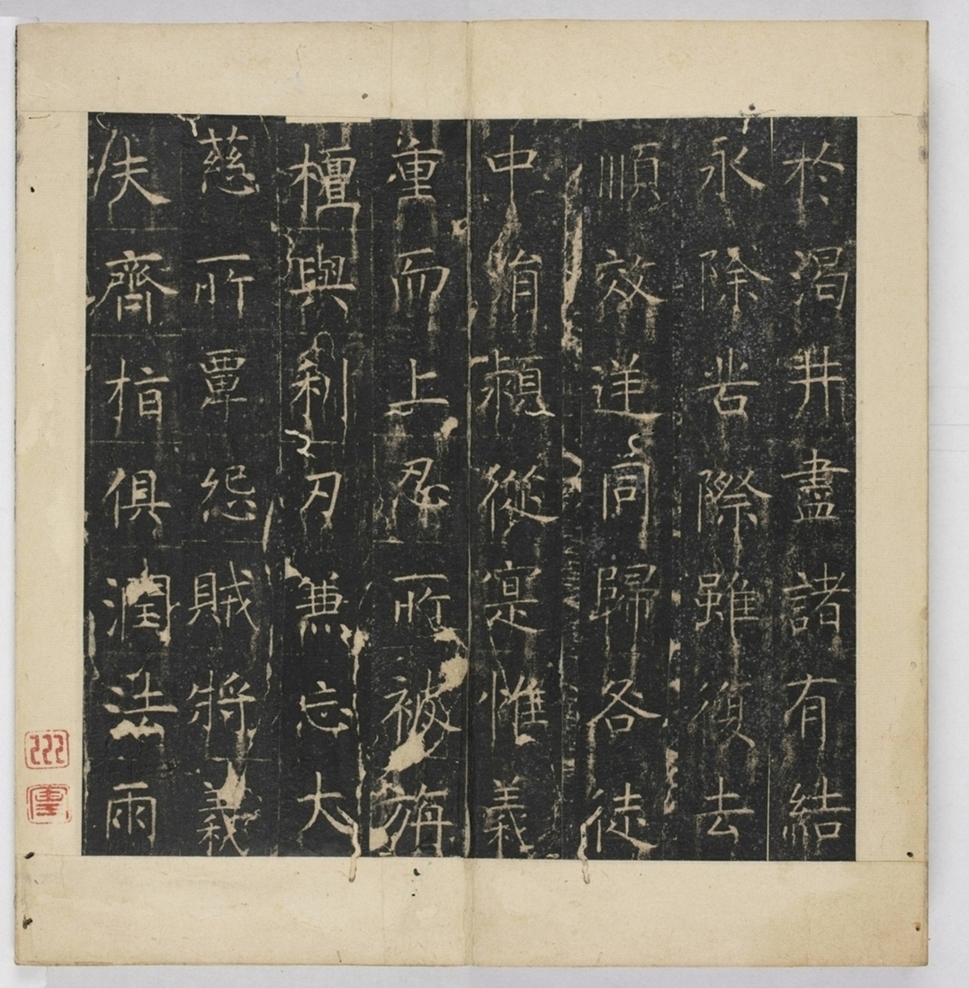 於渴井盡諸有結
永除苦際雖復去
順效逆同歸各徒
中涓類從寔惟義
重而上忍所被旃
檀與利刃兼忘大
慈所覃怨賊將義
夫齊指俱潤法雨